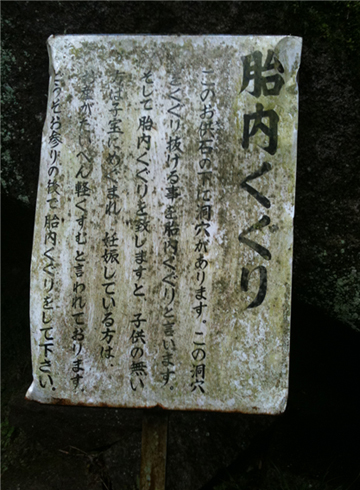 胎内くぐり
このお供石の下に洞穴があります。この洞穴
をくぐり抜ける事を胎内くぐりと言います。
そして胎内くぐりを致しますと、子供の無い
方は子宝にめぐまれ、妊娠している方は、
お産がたいへん軽くすむと言われております。
どうぞお参りの後で胎内くぐりをして下さい。